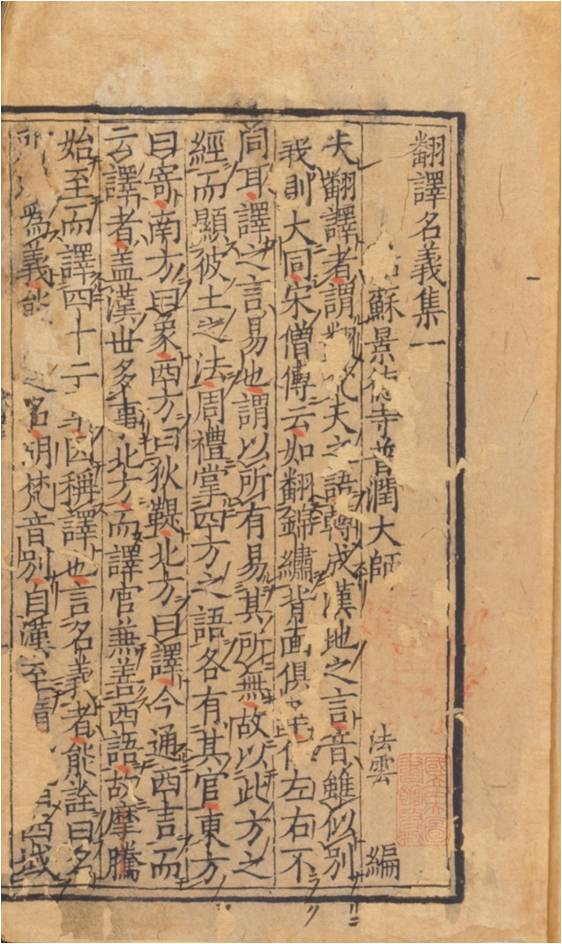 翻譯名義集一
蘇景德寺普潤大師 法雲 編
夫翻譯者謂天之語轉成漢地之言音雖似別
義則大同宋僧傳云如翻錦繡背面俱左右不
同耳譯之言易也謂以所有易其所無故以此方之
經而顯彼土之法周禮掌四方之語各有其官東方
曰寄南方曰象西方曰狄鞮北方曰譯今通西言而
云譯者蓋漢世多事北方而譯官兼善西語故摩騰
始至而譯四十二章因稱譯也言名義者能詮曰名
為義能之名胡梵音別自漢至隋西域